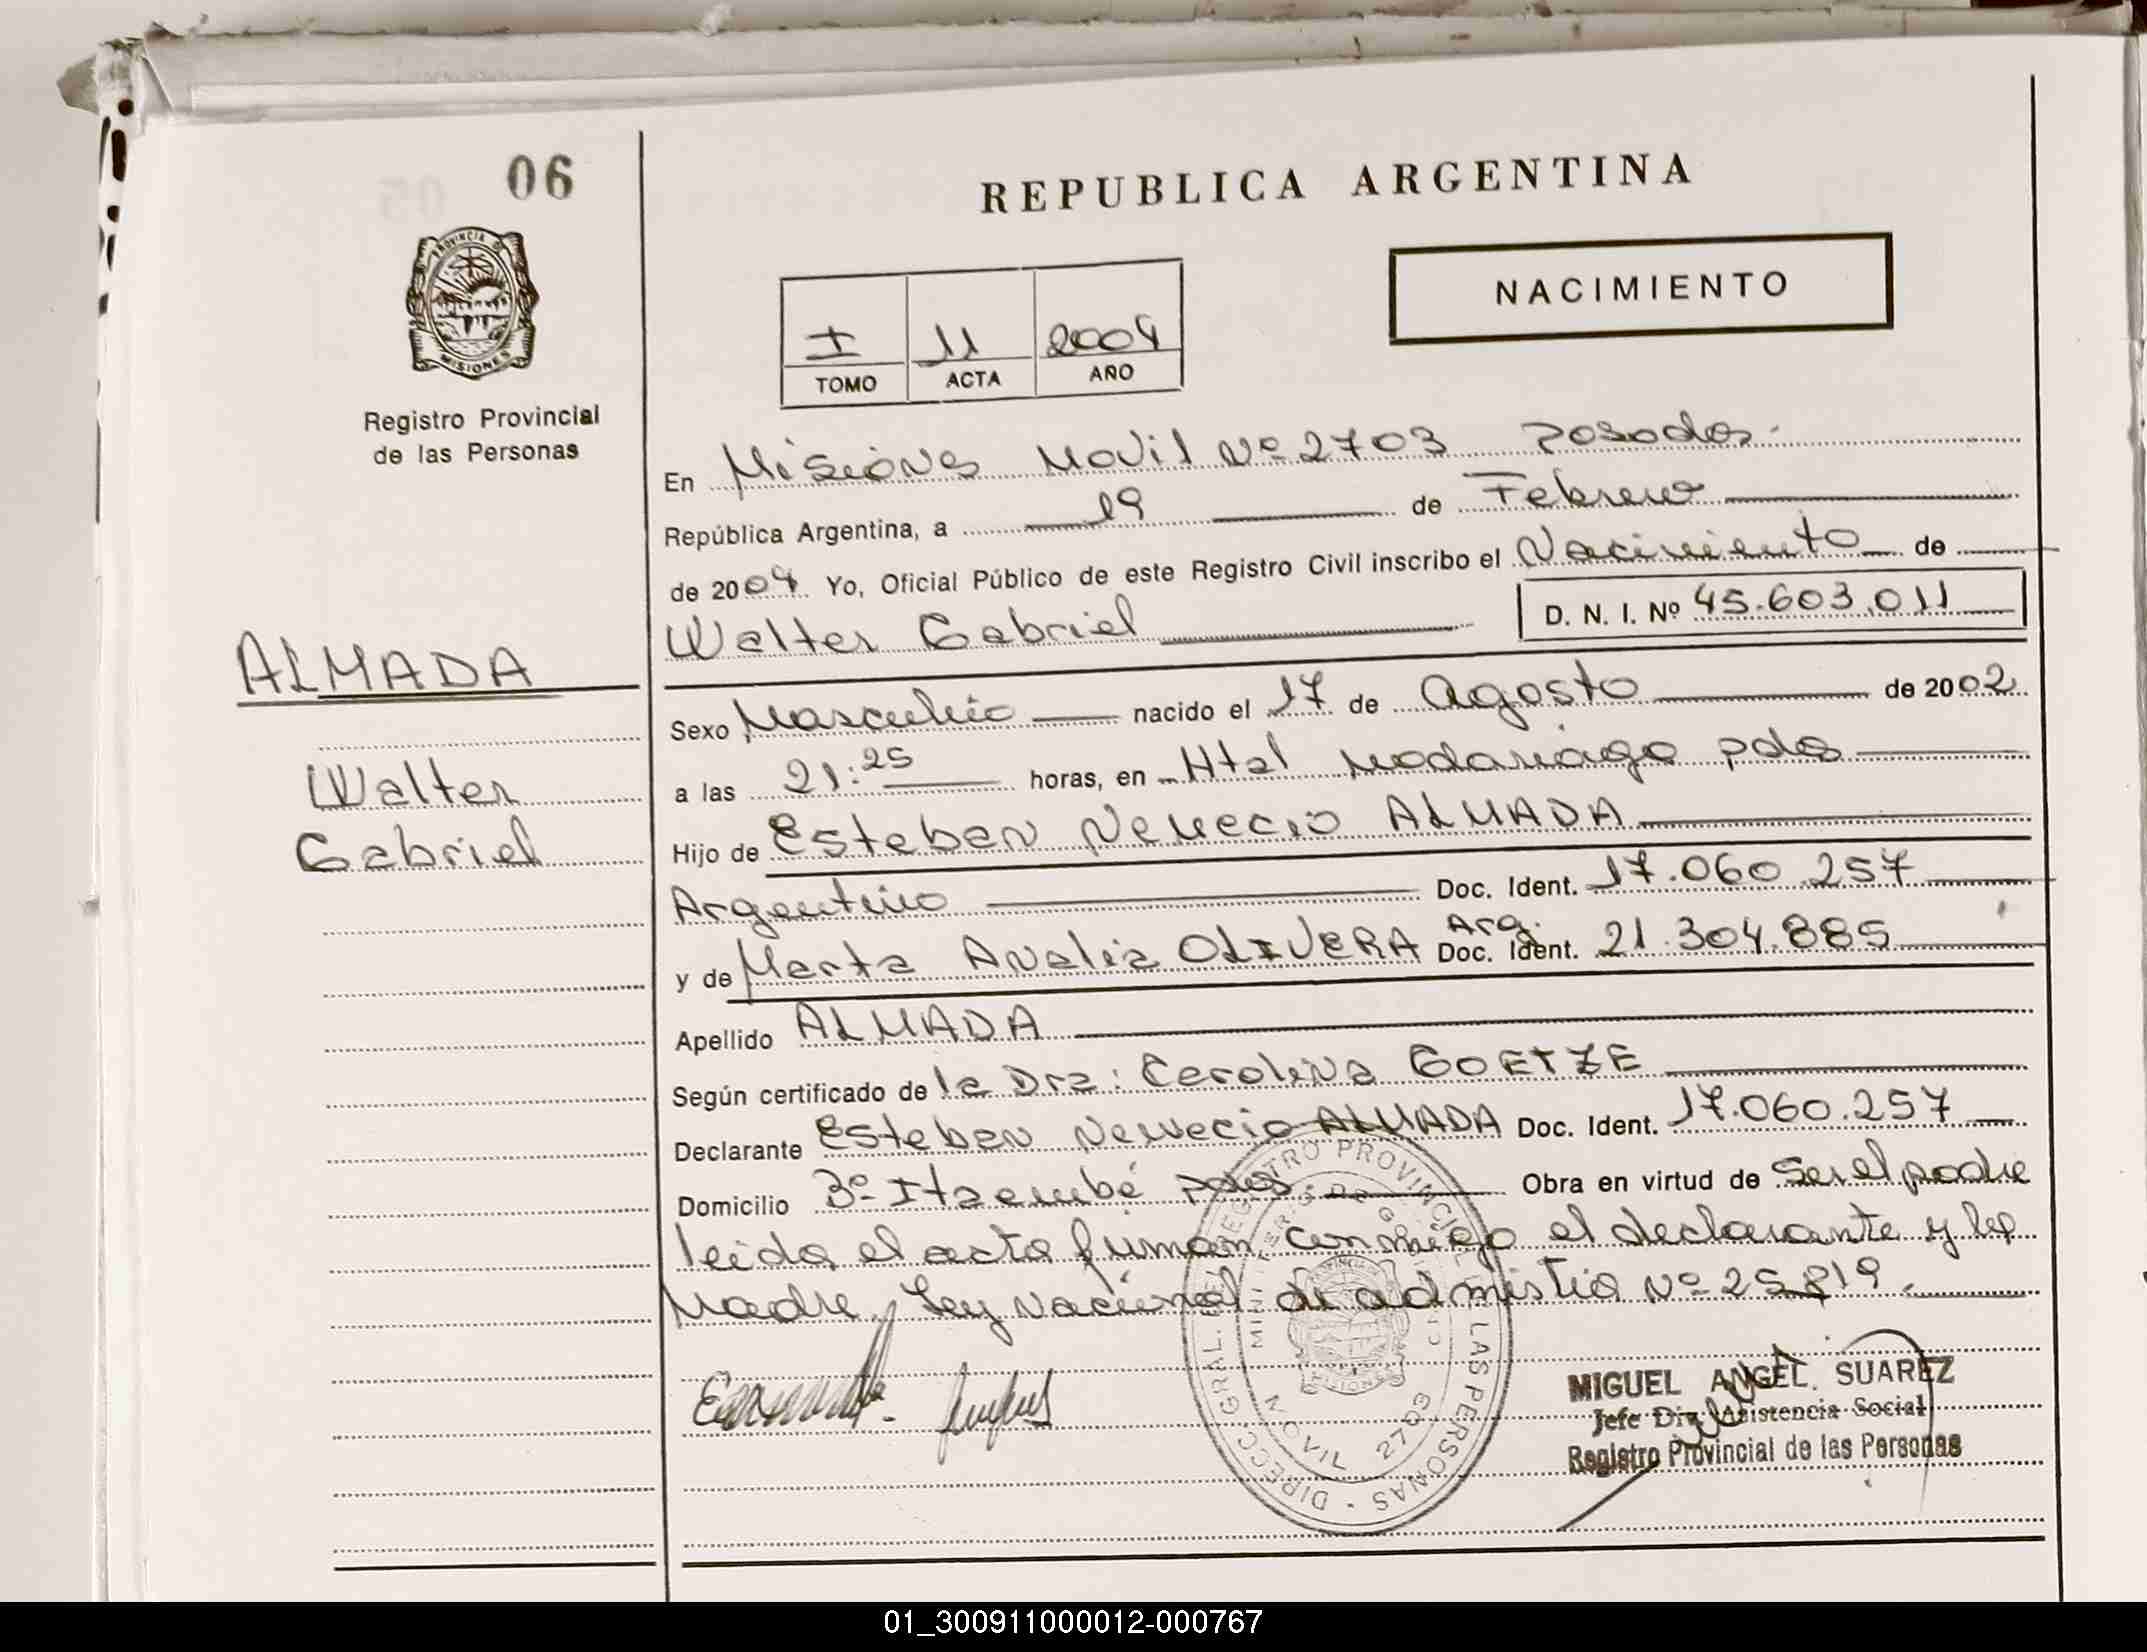 06
REPUBLICA ARGENTINA
PROVINCIA DE
MISIONES
NACIMIENTO
I 11 2004
TOMO ACTA AÑO
Registro Provincial
de las Personas
En Misiones Movil Nº 2703 Posadas.
República Argentina, a 19 de Febrero
de 2004 Yo, Oficial Público de este Registro Civil inscribo el Nacimiento de
Walter Gabriel D. N. I. Nº 45.603.011
ALMADA
Walter
Gabriel
Sexo Masculino nacido el 17 de Agosto de 2002
a las 21:25 horas, en Htal Madariaga pdas
Hijo de Esteban Nemecio ALMADA
Argentino Doc. Ident. 17.060.257
y de Marta Analia OLIVERA Arg. Doc. Ident. 21.304.885
Apellido ALMADA
Según certificado de la Dra: Carolina GOETZE
Declarante Esteban Nemecio ALMADA Doc. Ident. 17.060.257
Domicilio Bº Itaembé pdas Obra en virtud de Ser el padre
leida el acta firman conmigo el declarante y la
Madre, Ley Nacional de admistia Nº 25819.
DIRECC. GRAL. DEL REGISTRO PROVINCIAL DE LAS PERSONAS
MINISTERIO DE GOBIERNO
MOVIL 2703
MIGUEL ANGEL SUAREZ
Jefe Div. Asistencia Social
Registro Provincial de las Personas
01_300911000012-000767